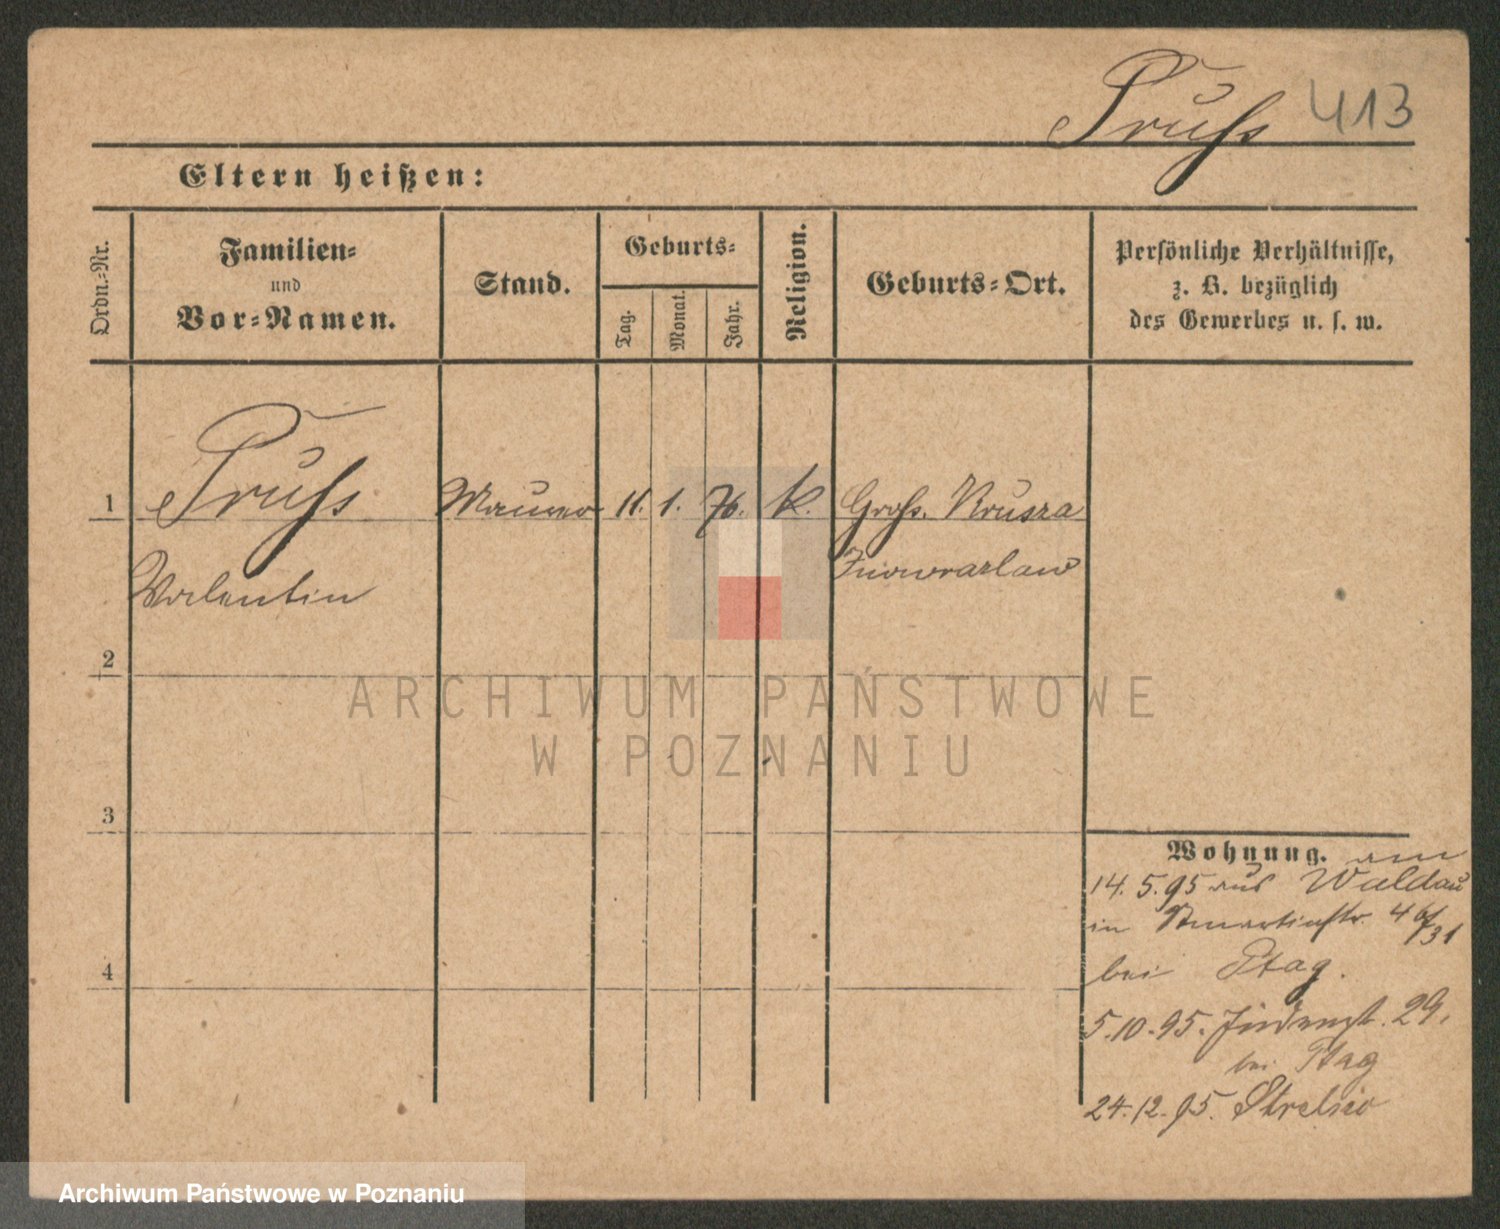 Pruſs 413
Eltern heißen:
Ordn.-Nr.
Familien-
und
Vor-Namen.
Stand.
Geburts-
Tag.
Monat.
Jahr.
Religion.
Geburts-Ort.
Persönliche Verhältnisse,
z. B. bezüglich
des Gewerbes u. s. w.
1 Pruſs Maurer 11. 1. 76. k. Groß. Krusza
Valentin Inowrazlaw
2
ARCHIWUM PAŃSTWOWE
W POZNANIU
3
Wohnung. am
14. 5. 95 aus Waldau
in Stmartinstr. 46/31
bei Ptag.
5. 10. 95. Judenst. 29.
bei Ptag
24. 12. 95. Strelno
4
Archiwum Państwowe w Poznaniu